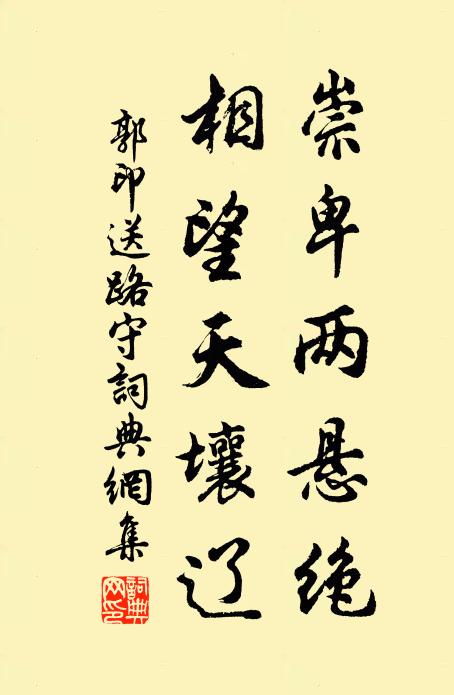 崇卑两悬绝
相望天壤辽
郭印送路守詞典網集
詞典网印